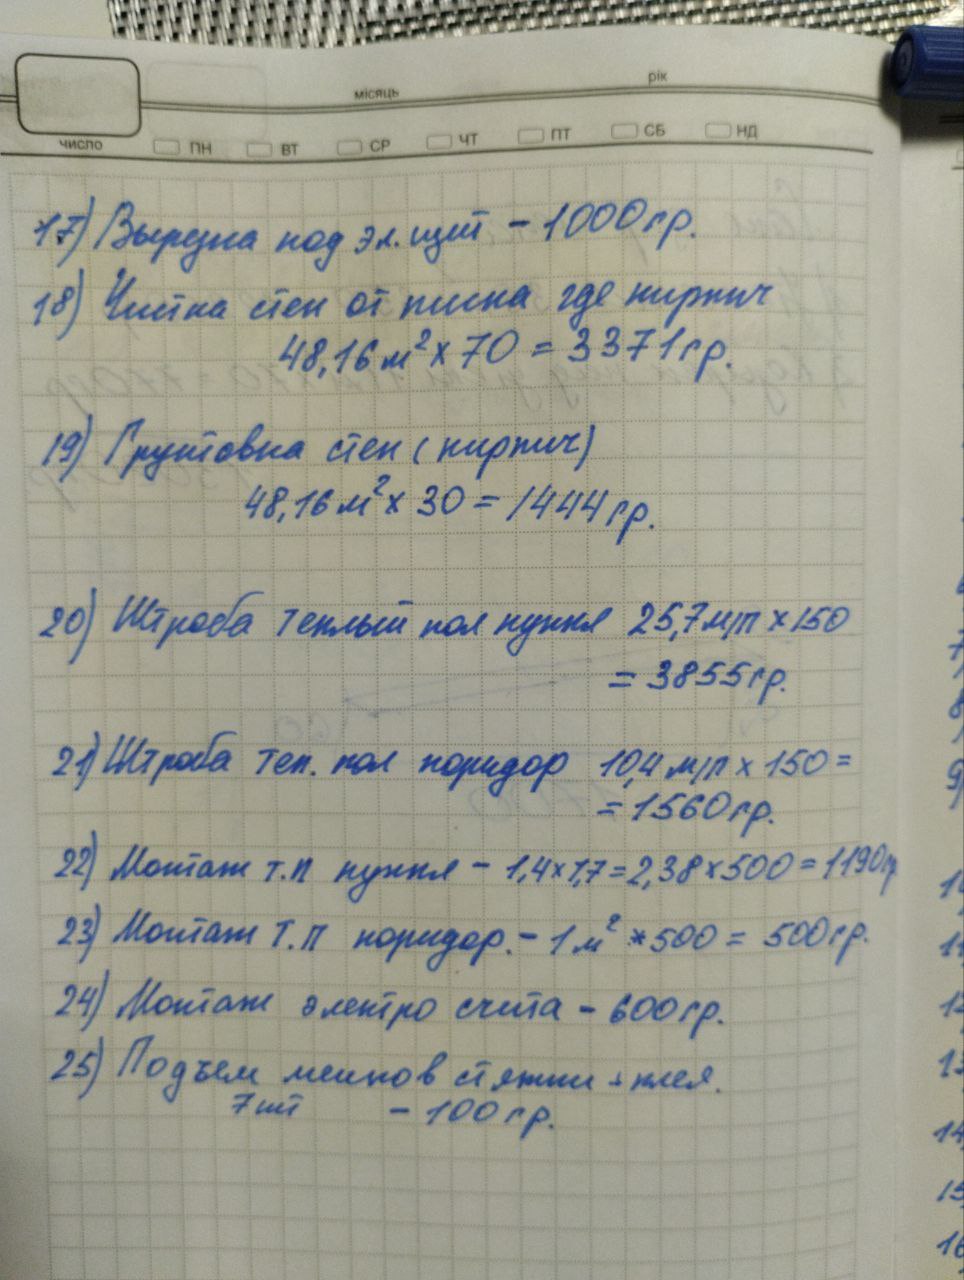 місяць рік
число ПН ВТ СР ЧТ ПТ СБ НД
17) Вырезка под эл. щит - 1000 гр.
18) Чистка стен от писка где кирпич
48,16 м² x 70 = 3371 гр.
19) Грунтовка стен (кирпич)
48,16 м² x 30 = 1444 гр.
20) Штроба теплый пол кухня 25,7 м/п x 150
= 3855 гр.
21) Штроба теп. пол коридор 10,4 м/п x 150 =
= 1560 гр.
22) Монтаж т.п кухня - 1,4 x 1,7 = 2,38 x 500 = 1190 гр
23) Монтаж т.п коридор. - 1 м² * 500 = 500 гр.
24) Монтаж электро счита - 600 гр.
25) Подъем мешков стяжки + клея.
7 шт - 100 гр.